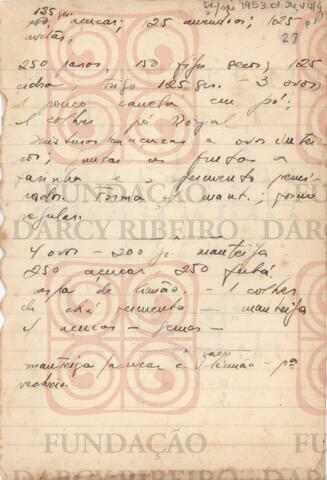 125 gr.
açucar; 125 amendoas; 125
avelãs;
27
250 passas, 150 figo seco; 125
cidra, trigo 125 grs. - 3 ovos,
1 pouco canela em pó;
1 colher pó Royal
misturar açucar e ovos intei
ros; as frutas a
farinha e o fermento penei
rados. Forma mant.; forno
regular.
4 ovos - 200 gr. manteiga
250 acucar 250 fubá
raspa de limão. - 1 colher
de chá fermento - manteiga
e açucar - gemas -
manteiga açucar e limão - pª
recheio.
FUNDAÇÃO
DARCY RIBEIRO
FUNDAÇÃO
DARCY RIBEIRO